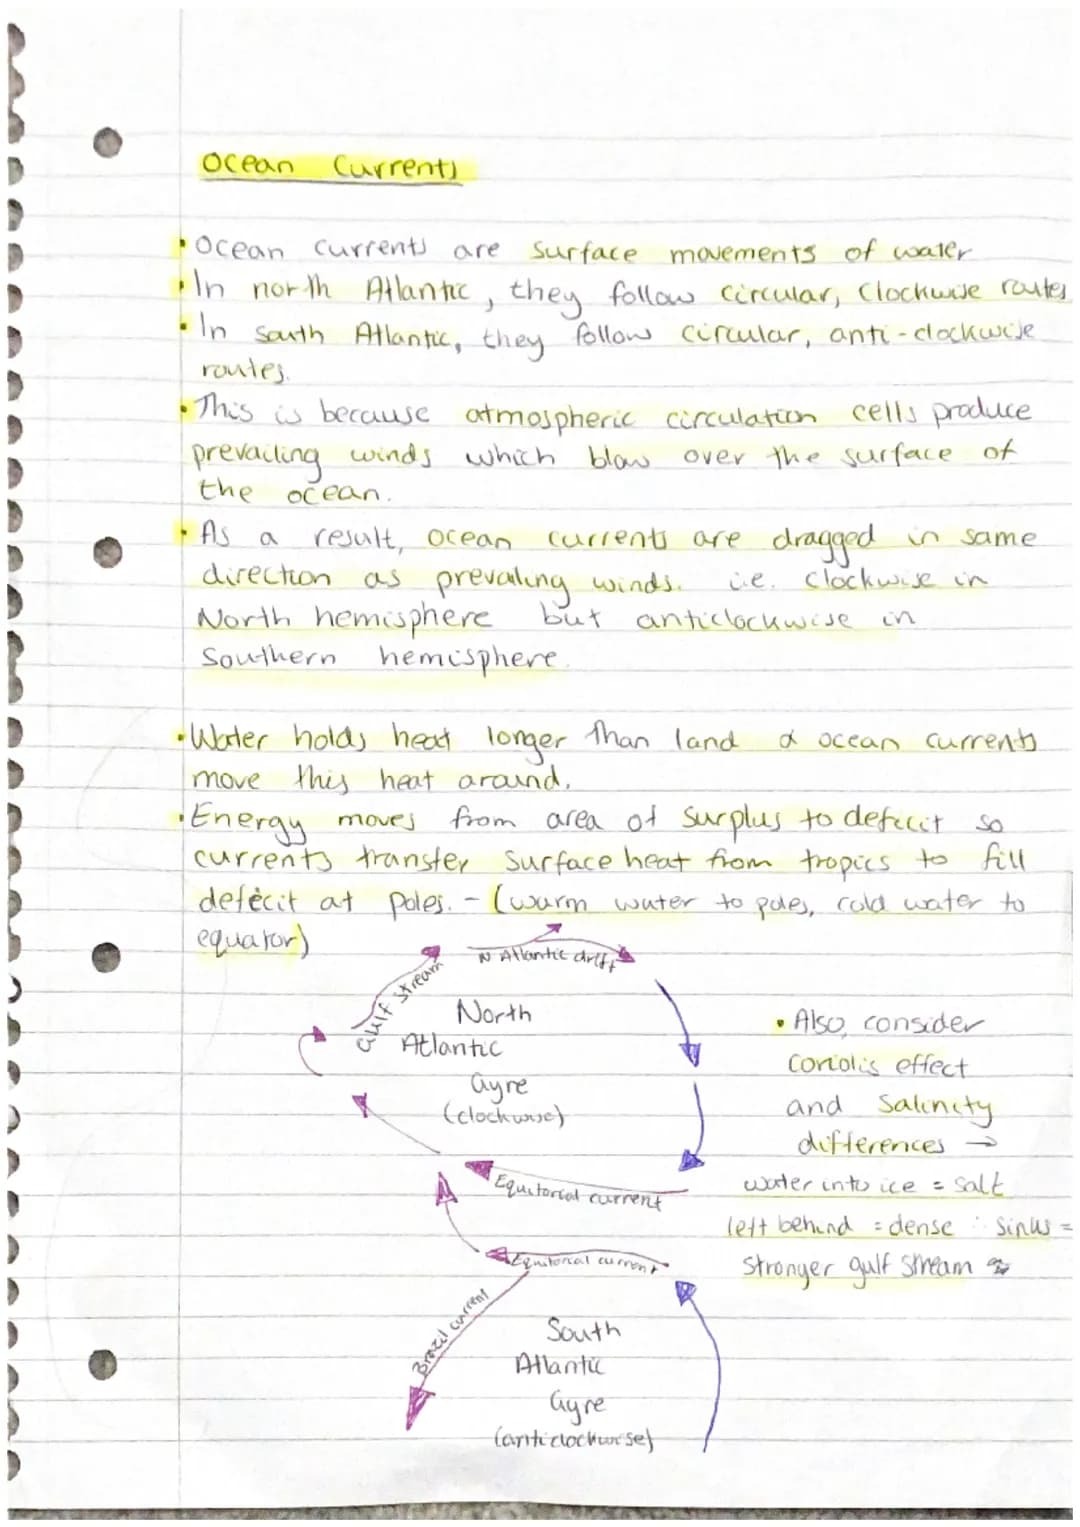 Ocean Currents
• Ocean currents are surface movements of water
• In north Atlantic, they follow circular, clockwise routes
• In south Atlantic, they follow circular, anti-clockwise
routes.
• This is because atmospheric circulation cells produce
prevailing winds which blow over the surface of
the ocean.
• As a result, ocean currents are dragged in same
direction as prevailing winds. i.e. clockwise in
North hemisphere but anticlockwise in
Southern hemisphere.
• Water holds heat longer than land & ocean currents
move this heat around.
• Energy moves from area of surplus to deficit so
currents transfer surface heat from tropics to fill
deficit at poles. - (warm water to poles, cold water to
equator)
N Atlantic drift
Gulf stream
North
Atlantic
Gyre
(clockwise)
Equitorial current
Equitorial current
Brazil current
South
Atlantic
Gyre
(anticlockwise)
• Also, consider
coriolis effect
and salinity
differences →
water into ice = salt
left behind = dense ∴ sinks =
stronger gulf stream